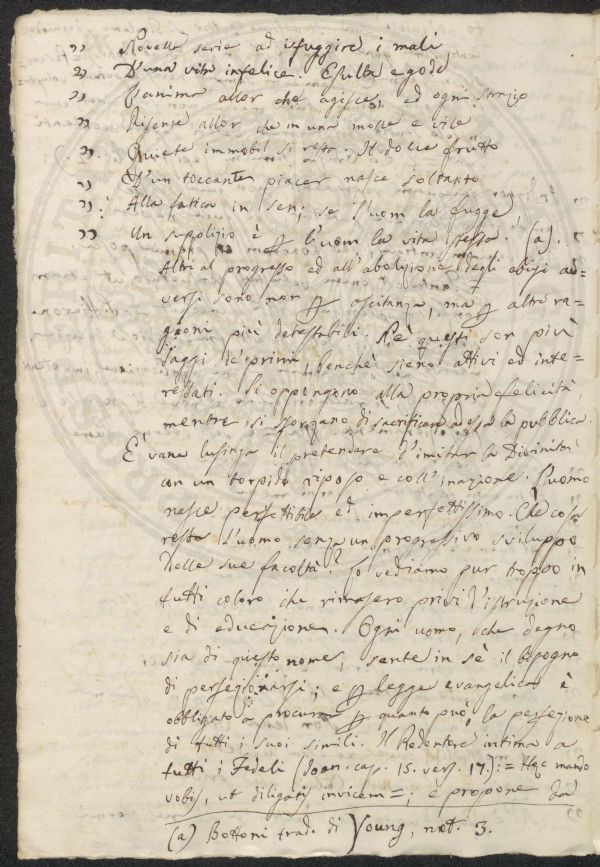 " Novella serie ad isfuggire i mali
" D'una vita infelice. Esulta e gode
" L'anima allor che agisce, ed ogni strazio
" Risente allor che in una molle e vile
" Quiete immobil si resta. Il dolce frutto
" D'un toccante piacer nasce soltanto
" Alla fatica in sen; se l'uom la fugge,
" Un supplizio è per l'uom la vita istessa. (a).
Altri al progresso ed all'abolizione degli abusi av=
versi sono non per oscitanza, ma per altre ra=
gioni più detestabili. Nè questi son più
saggi de' primi, benchè sieno attivi ed inte=
ressati. Si oppongono alla propria felicità,
mentre si sforzano di sacrificare ad essa la pubblica.
E' vana lusinga il pretendere d'imitar la Divinità
con un torpido riposo e coll'inazione. L'uomo
nasce perfettibile ed imperfettissimo. Che cosa
resta l'uomo senza un progressivo sviluppo
delle sue facoltà? Lo vediamo pur troppo in
tutti coloro che rimasero privi d'istruzione
e di educazione. Ogni uomo, che degno
sia di questo nome, sente in sè il bisogno
di perfezionarsi; e per legge evangelica è
obbligato a procurar per quanto può, la perfezione
di tutti i suoi simili. Il Redentore intima a
tutti i Fedeli (Joan. cap. 15. vers. 17.): = Hec mando
vobis, ut diligatis invicem =; e propone da
(a) Bottoni trad. di Young, not. 3.